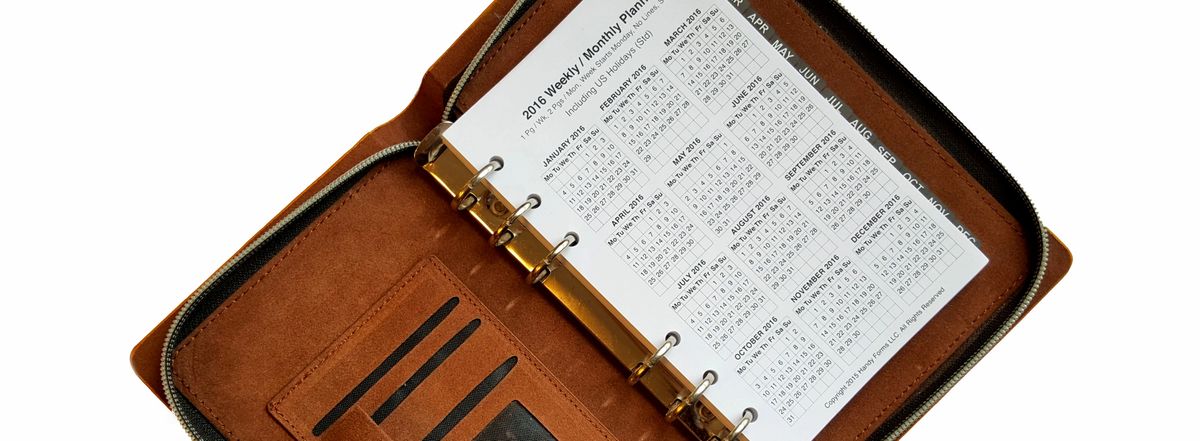 2016 Weekly / Monthly Plann
1 Pg / Wk. 2 Pgs / Mon. Week Starts Monday, No Lines,
Including US Holidays (Std)
JANUARY 2016
Mo Tu We Th Fr Sa Su
1 2 3
4 5 6 7 8 9 10
11 12 13 14 15 16 17
18 19 20 21 22 23 24
25 26 27 28 29 30 31
FEBRUARY 2016
Mo Tu We Th Fr Sa Su
1 2 3 4 5 6 7
8 9 10 11 12 13 14
15 16 17 18 19 20 21
22 23 24 25 26 27 28
29
MARCH 2016
Mo Tu We Th Fr Sa Su
1 2 3 4 5 6
7 8 9 10 11 12 13
14 15 16 17 18 19 20
21 22 23 24 25 26 27
28 29 30 31
APRIL 2016
Mo Tu We Th Fr Sa Su
1 2 3
4 5 6 7 8 9 10
11 12 13 14 15 16 17
18 19 20 21 22 23 24
25 26 27 28 29 30
MAY 2016
Mo Tu We Th Fr Sa Su
1
2 3 4 5 6 7 8
9 10 11 12 13 14 15
16 17 18 19 20 21 22
23 24 25 26 27 28 29
30 31
JUNE 2016
Mo Tu We Th Fr Sa Su
1 2 3 4 5
6 7 8 9 10 11 12
13 14 15 16 17 18 19
20 21 22 23 24 25 26
27 28 29 30
JULY 2016
Mo Tu We Th Fr Sa Su
1 2 3
4 5 6 7 8 9 10
11 12 13 14 15 16 17
18 19 20 21 22 23 24
25 26 27 28 29 30 31
AUGUST 2016
Mo Tu We Th Fr Sa Su
1 2 3 4 5 6 7
8 9 10 11 12 13 14
15 16 17 18 19 20 21
22 23 24 25 26 27 28
29 30 31
SEPTEMBER 2016
Mo Tu We Th Fr Sa Su
1 2 3 4
5 6 7 8 9 10 11
12 13 14 15 16 17 18
19 20 21 22 23 24 25
26 27 28 29 30
OCTOBER 2016
Mo Tu We Th Fr Sa Su
1 2
3 4 5 6 7 8 9
10 11 12 13 14 15 16
17 18 19 20 21 22 23
24 25 26 27 28 29 30
31
NOVEMBER 2016
Mo Tu We Th Fr Sa Su
1 2 3 4 5 6
7 8 9 10 11 12 13
14 15 16 17 18 19 20
21 22 23 24 25 26 27
28 29 30
DECEMBER 2016
Mo Tu We Th Fr Sa Su
1 2 3 4
5 6 7 8 9 10 11
12 13 14 15 16 17 18
19 20 21 22 23 24 25
26 27 28 29 30 31
Copyright 2015 Handy Forms LLC. All Rights Reserved
APR
MAY
JUN
JUL
AUG
SEP
OCT
NOV
DEC